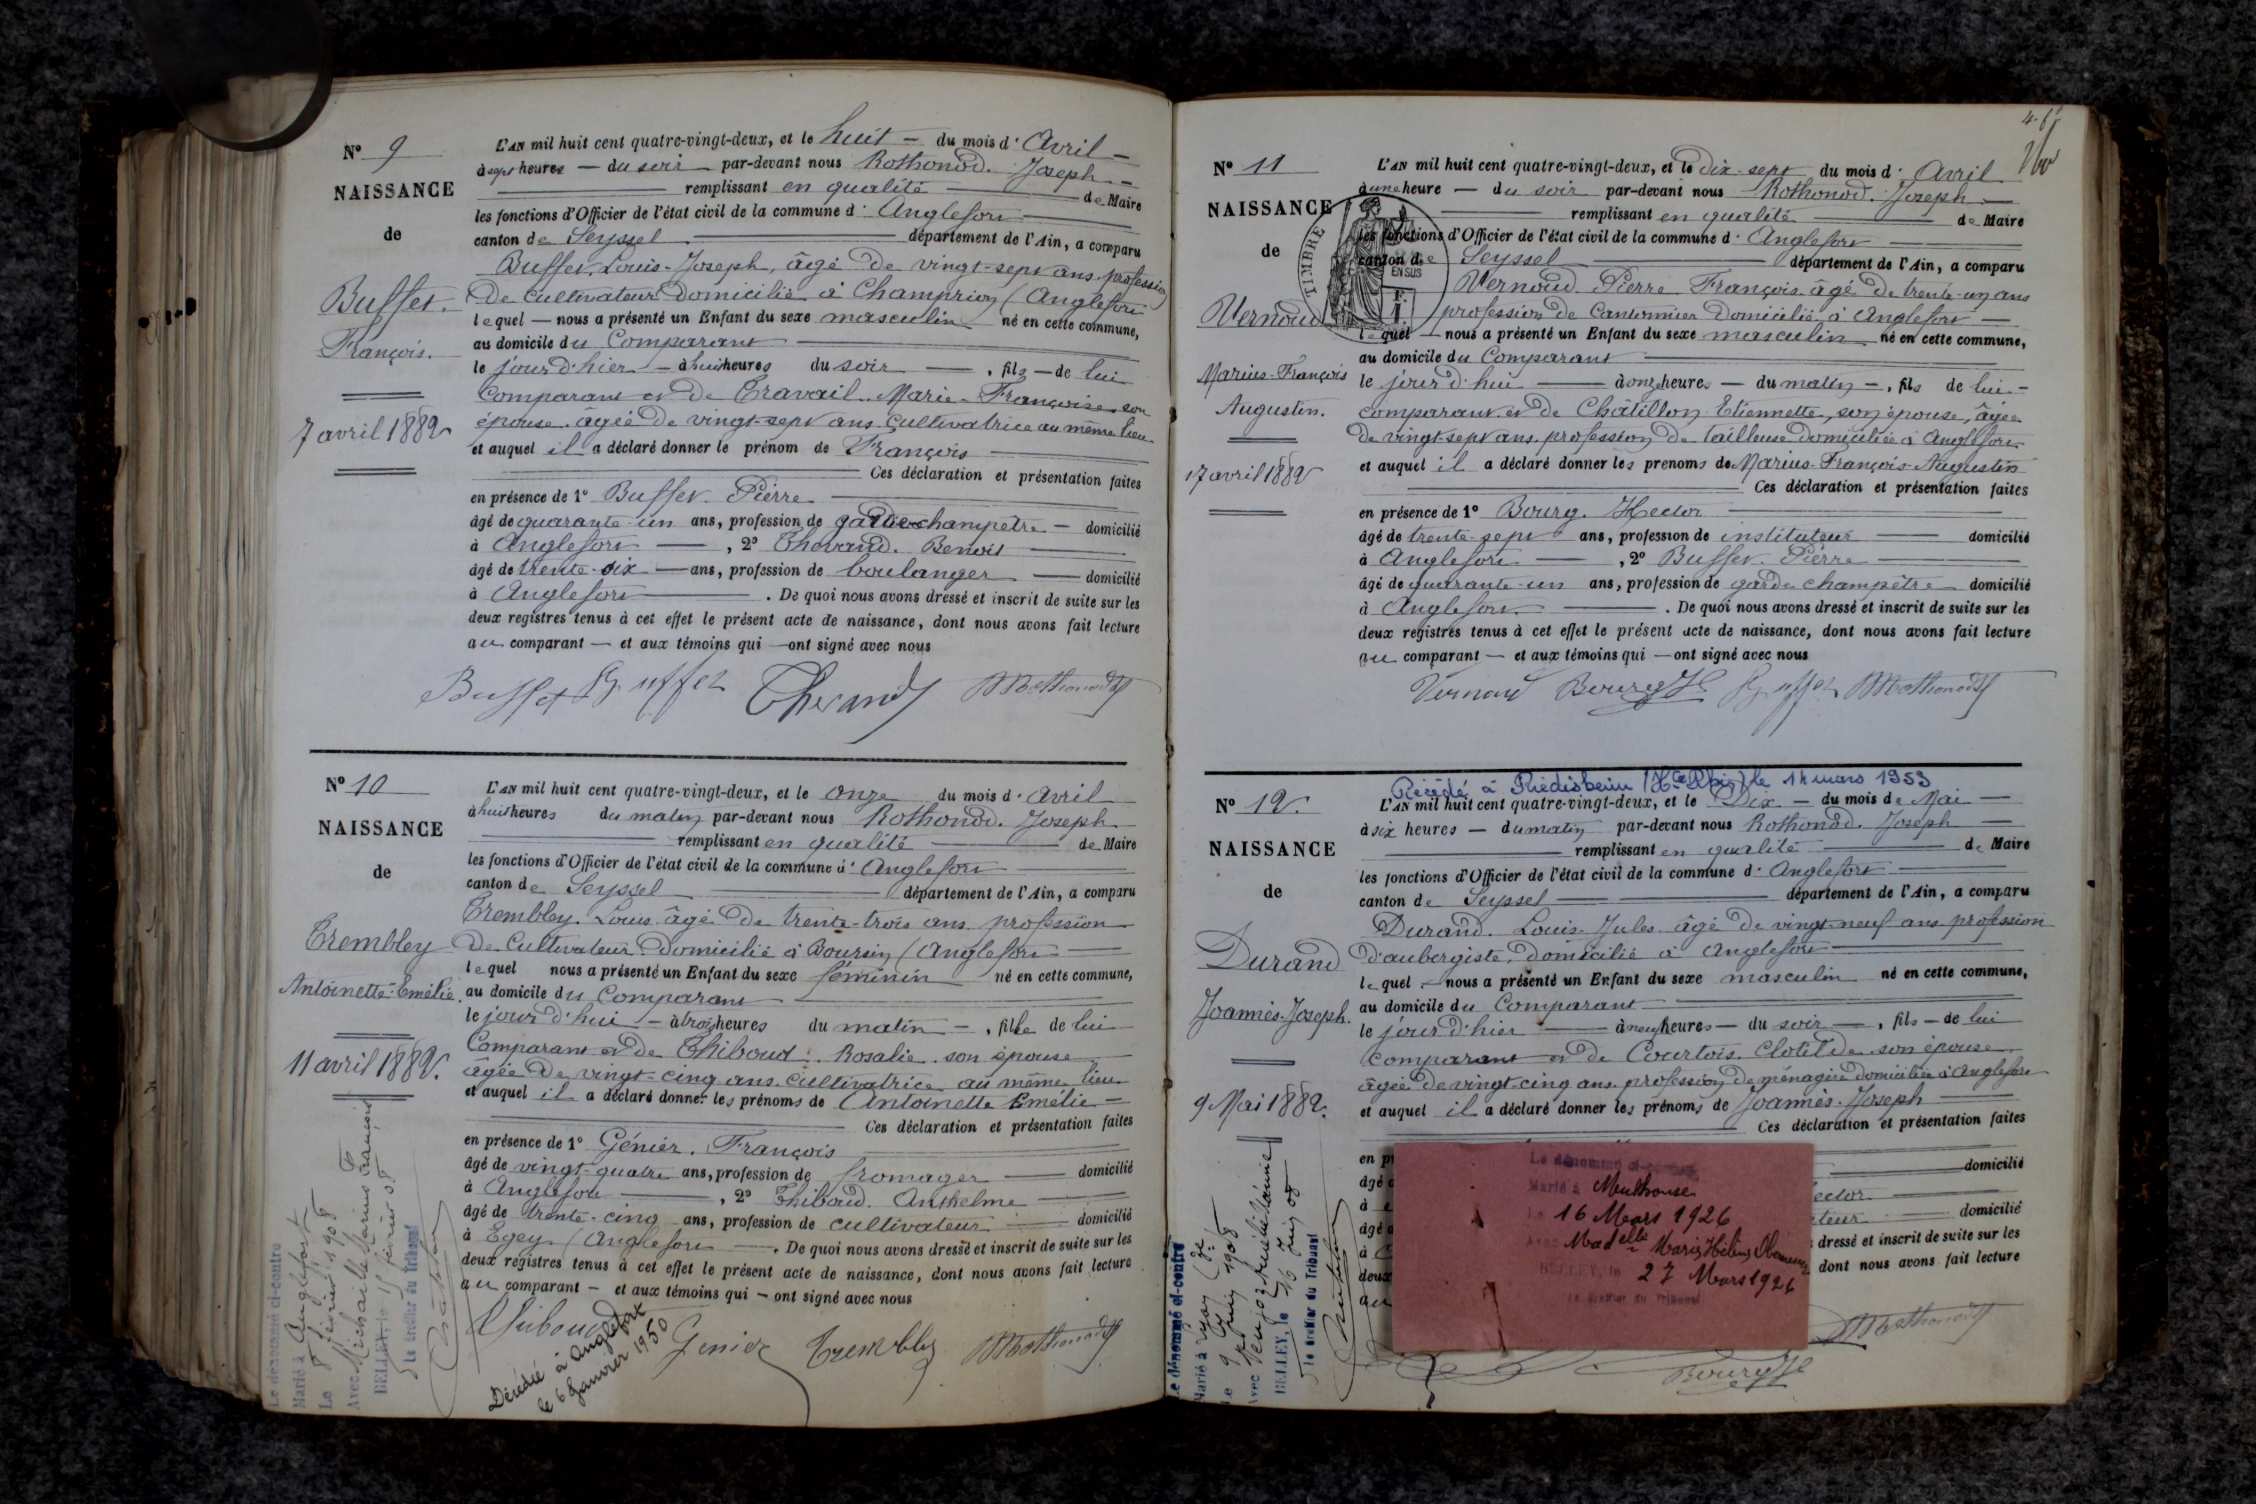 N° 9
NAISSANCE
de
Buffet.
François.
7 avril 1882
L'AN mil huit cent quatre-vingt-deux, et le huit — du mois d' Avril —
à sept heures — du soir par-devant nous Rothonod. Joseph —
remplissant en qualité de Maire
les fonctions d'Officier de l'état civil de la commune d' Anglefort
canton de Seyssel département de l'Ain, a comparu
Buffet, Louis-Joseph, âgé de vingt-sept ans profession
de cultivateur domicilié à Champrion (Anglefort
lequel — nous a présenté un Enfant du sexe masculin né en cette commune,
au domicile du Comparant
le jour d'hier — à huit heures du soir — , fils — de lui
Comparant et de Travail. Marie-Françoise son
épouse. âgée de vingt-sept ans. cultivatrice au même lieu
et auquel il a déclaré donner le prénom de François
Ces déclaration et présentation faites
en présence de 1° Buffet. Pierre
âgé de quarante-un ans, profession de garde-champêtre — domicilié
à Anglefort — , 2° Thevand. Benoit
âgé de trente-six — ans, profession de boulanger — domicilié
à Anglefort . De quoi nous avons dressé et inscrit de suite sur les
deux registres tenus à cet effet le présent acte de naissance, dont nous avons fait lecture
au comparant — et aux témoins qui — ont signé avec nous
Buffet Buffet Thevand Rothonod
N° 10
NAISSANCE
de
Trembley
Antoinette-Emélie.
11 avril 1882.
Le dénommé ci-contre
Marié à Anglefort
Le 8 février 1908
Avec Michaille Marius François
BELLEY, le 15 février 08
Le Greffier du Tribunal
L'AN mil huit cent quatre-vingt-deux, et le onze du mois d' avril
à huit heures du matin par-devant nous Rothonod. Joseph
remplissant en qualité de Maire
les fonctions d'Officier de l'état civil de la commune d' Anglefort
canton de Seyssel département de l'Ain, a comparu
Trembley. Louis âgé de trente-trois ans profession
de cultivateur domicilié à Boursin (Anglefort
lequel nous a présenté un Enfant du sexe féminin né en cette commune,
au domicile du Comparant
le jour d'hui — à trois heures du matin — , fille de lui
Comparant et de Thiboud. Rosalie. son épouse
âgée de vingt-cinq ans. cultivatrice au même lieu
et auquel il a déclaré donner les prénoms de Antoinette Emélie —
Ces déclaration et présentation faites
en présence de 1° Génier. François
âgé de vingt-quatre ans, profession de fromager domicilié
à Anglefort , 2° Thiboud. Anthelme
âgé de trente-cinq ans, profession de cultivateur domicilié
à Egey (Anglefort — . De quoi nous avons dressé et inscrit de suite sur les
deux registres tenus à cet effet le présent acte de naissance, dont nous avons fait lecture
au comparant — et aux témoins qui — ont signé avec nous
Thiboud Genier Trembley Rothonod
Décédée à Anglefort
le 6 Janvier 1950
N° 11
NAISSANCE
de
Vernoud
Marius-François
Augustin.
17 avril 1882
TIMBRE
EN SUS
L'AN mil huit cent quatre-vingt-deux, et le dix-sept du mois d' Avril
à une heure — du soir par-devant nous Rothonod. Joseph —
remplissant en qualité de Maire
les fonctions d'Officier de l'état civil de la commune d' Anglefort
canton de Seyssel département de l'Ain, a comparu
Vernoud Pierre François âgé de trente-un ans
profession de Cantonnier domicilié à Anglefort —
lequel — nous a présenté un Enfant du sexe masculin né en cette commune,
au domicile du Comparant
le jour d'hui — à onze heures — du matin — , fils de lui —
comparant et de Châtillon Etiennette, son épouse, âgée
de vingt-sept ans. profession de tailleuse domiciliée à Anglefort
et auquel il a déclaré donner les prenoms de Marius-François-Augustin
Ces déclaration et présentation faites
en présence de 1° Bourg. Hector
âgé de trente-sept ans, profession de instituteur domicilié
à Anglefort , 2° Buffet. Pierre
âgé de quarante-un ans, profession de garde champêtre domicilié
à Anglefort. . De quoi nous avons dressé et inscrit de suite sur les
deux registres tenus à cet effet le présent acte de naissance, dont nous avons fait lecture
au comparant — et aux témoins qui — ont signé avec nous
Vernoud Bourg H Buffet Rothonod
N° 12.
NAISSANCE
de
Durand
Joannès-Joseph.
9 Mai 1882.
Le dénommé ci-contre
Marié à
Le 9 Juin 1908
Avec
BELLEY, le 16 Juin 08
Le Greffier du Tribunal
Décédé à Riedisheim (Ht Rhin) le 14 mars 1953
L'AN mil huit cent quatre-vingt-deux, et le Dix — du mois de Mai —
à six heures — du matin par-devant nous Rothonod. Joseph —
remplissant en qualité de Maire
les fonctions d'Officier de l'état civil de la commune d' Anglefort
canton de Seyssel département de l'Ain, a comparu
Durand. Louis-Jules âgé de vingt-neuf ans profession
d'aubergiste, domicilié à Anglefort
lequel — nous a présenté un Enfant du sexe masculin né en cette commune,
au domicile du Comparant
le jour d'hier — à neuf heures — du soir — , fils — de lui
comparant et de Courtois. Clotilde son épouse
âgée de vingt-cinq ans profession de ménagère domiciliée à Anglefort
et auquel il a déclaré donner les prénoms de Joannès-Joseph
Ces déclaration et présentation faites
domicilié
domicilié
dressé et inscrit de suite sur les
dont nous avons fait lecture
Le dénommé ci-contre
Marié à Mulhouse
Le 16 Mars 1926
Avec Madelle Marie Hélène
BELLEY, le 27 Mars 1926
Le Greffier du Tribunal
Rothonod
Bourg H